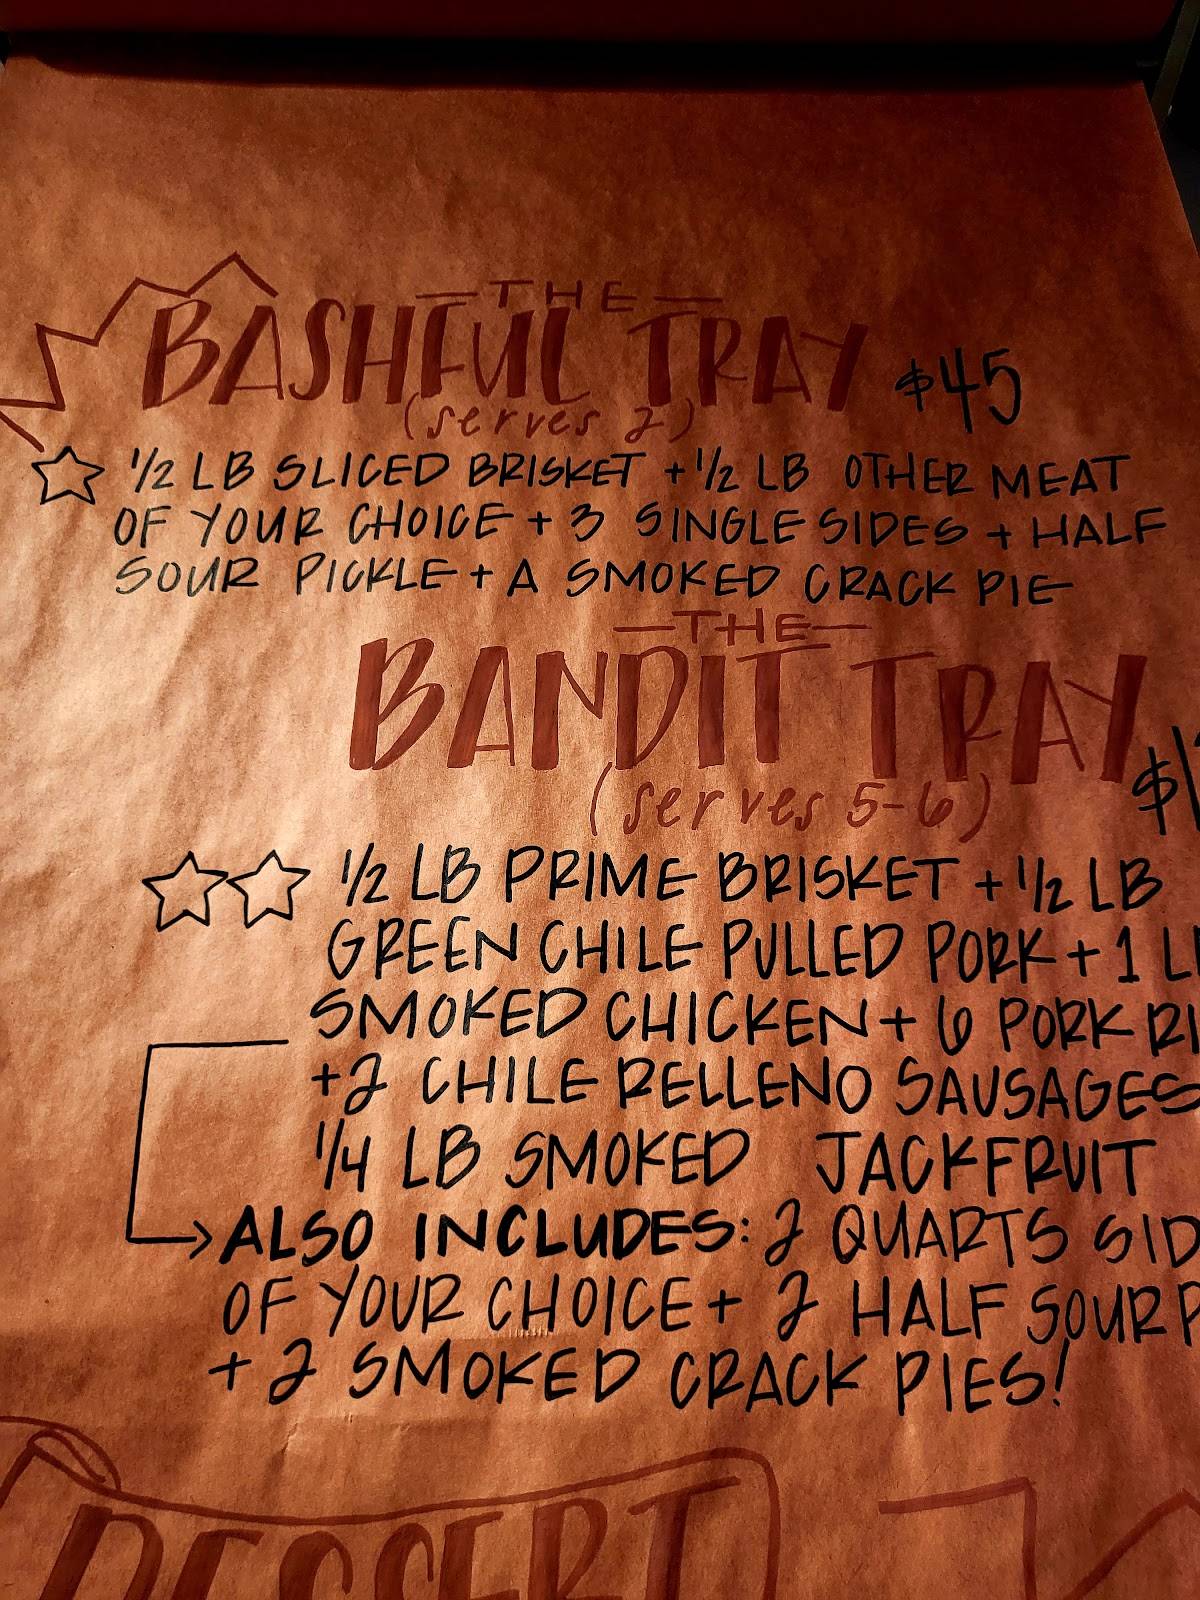 —THE—
BASHFUL TRAY $45
(serves 2)
1/2 LB SLICED BRISKET + 1/2 LB OTHER MEAT
OF YOUR CHOICE + 3 SINGLE SIDES + HALF
SOUR PICKLE + A SMOKED CRACK PIE
—THE—
BANDIT TRAY
(serves 5-6)
1/2 LB PRIME BRISKET + 1/2 LB
GREEN CHILE PULLED PORK + 1
SMOKED CHICKEN + 6 PORK
+ 2 CHILE RELLENO SAUSAGES
1/4 LB SMOKED JACKFRUIT
ALSO INCLUDES: 2 QUARTS
OF YOUR CHOICE + 2 HALF SOUR
+ 2 SMOKED CRACK PIES!
DESSERT